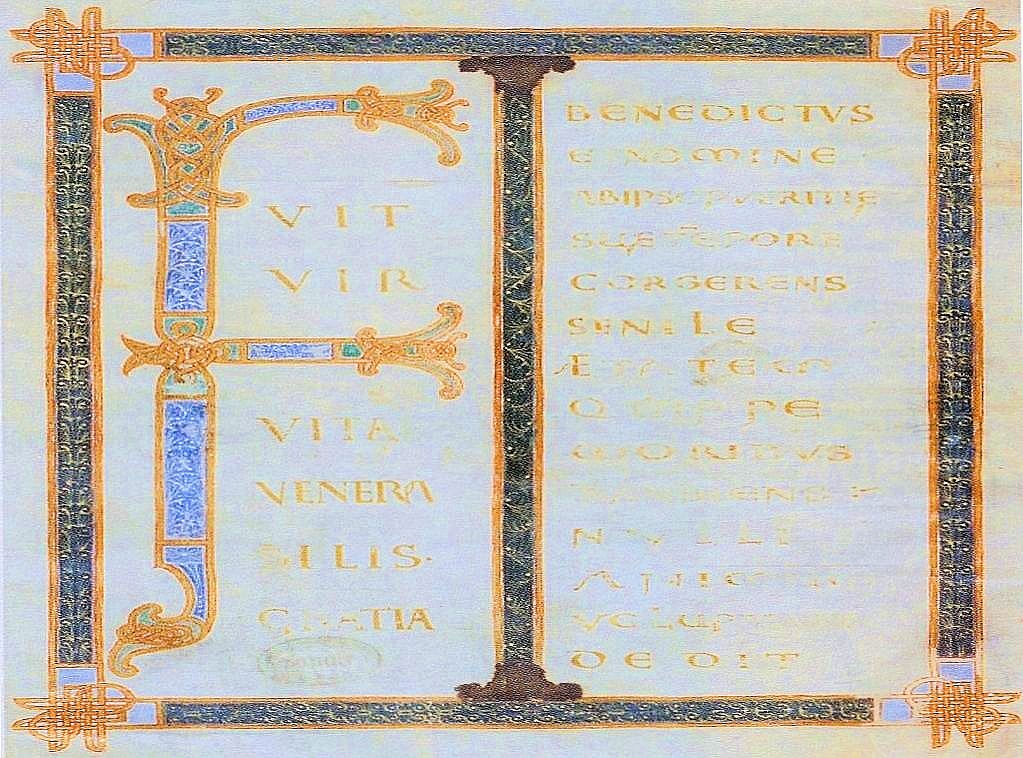 FVIT
VIR
VITAE
VENERA
BILIS·
GRATIA
BENEDICTVS
E NOMINE
ABIPSO PVERITIE
SUE TĒPORE
CORGERENS
SENILE
ÆTATEM
QUIPPE
MORIBVS
NVLLI
ANIMUM
VOLUPTATI
DEDIT